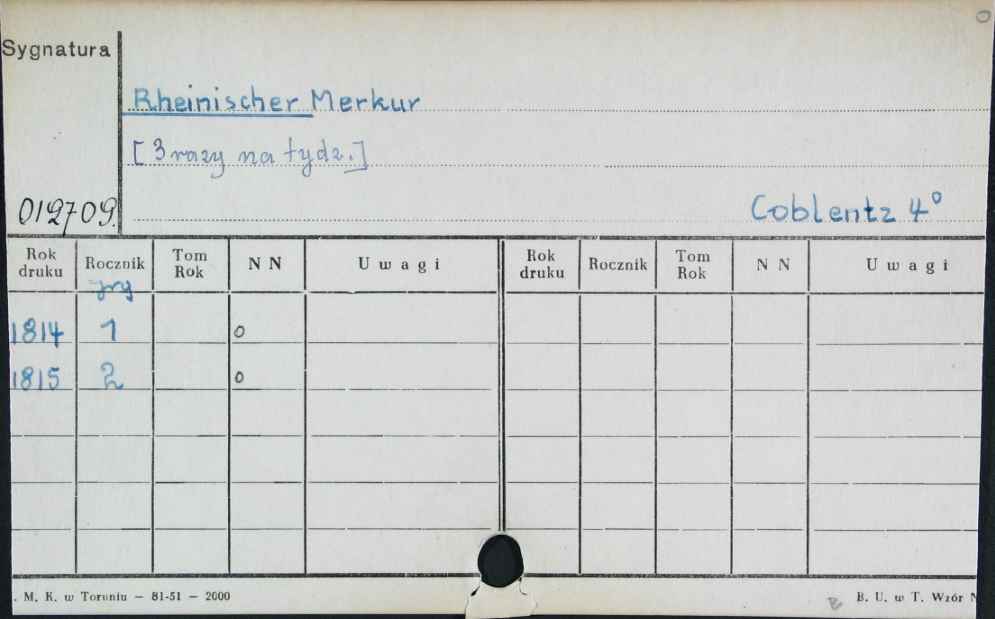 Sygnatura
Rheinischer Merkur
[3 razy na tydz.]
012709.
Coblentz 4°
Rok druku Rocznik Tom Rok N N Uwagi Rok druku Rocznik Tom Rok N N Uwagi
Jrg
1814 1 o
1815 2 o
. M. K. w Toruniu — 81-51 — 2000
B. U. w T. Wzór N